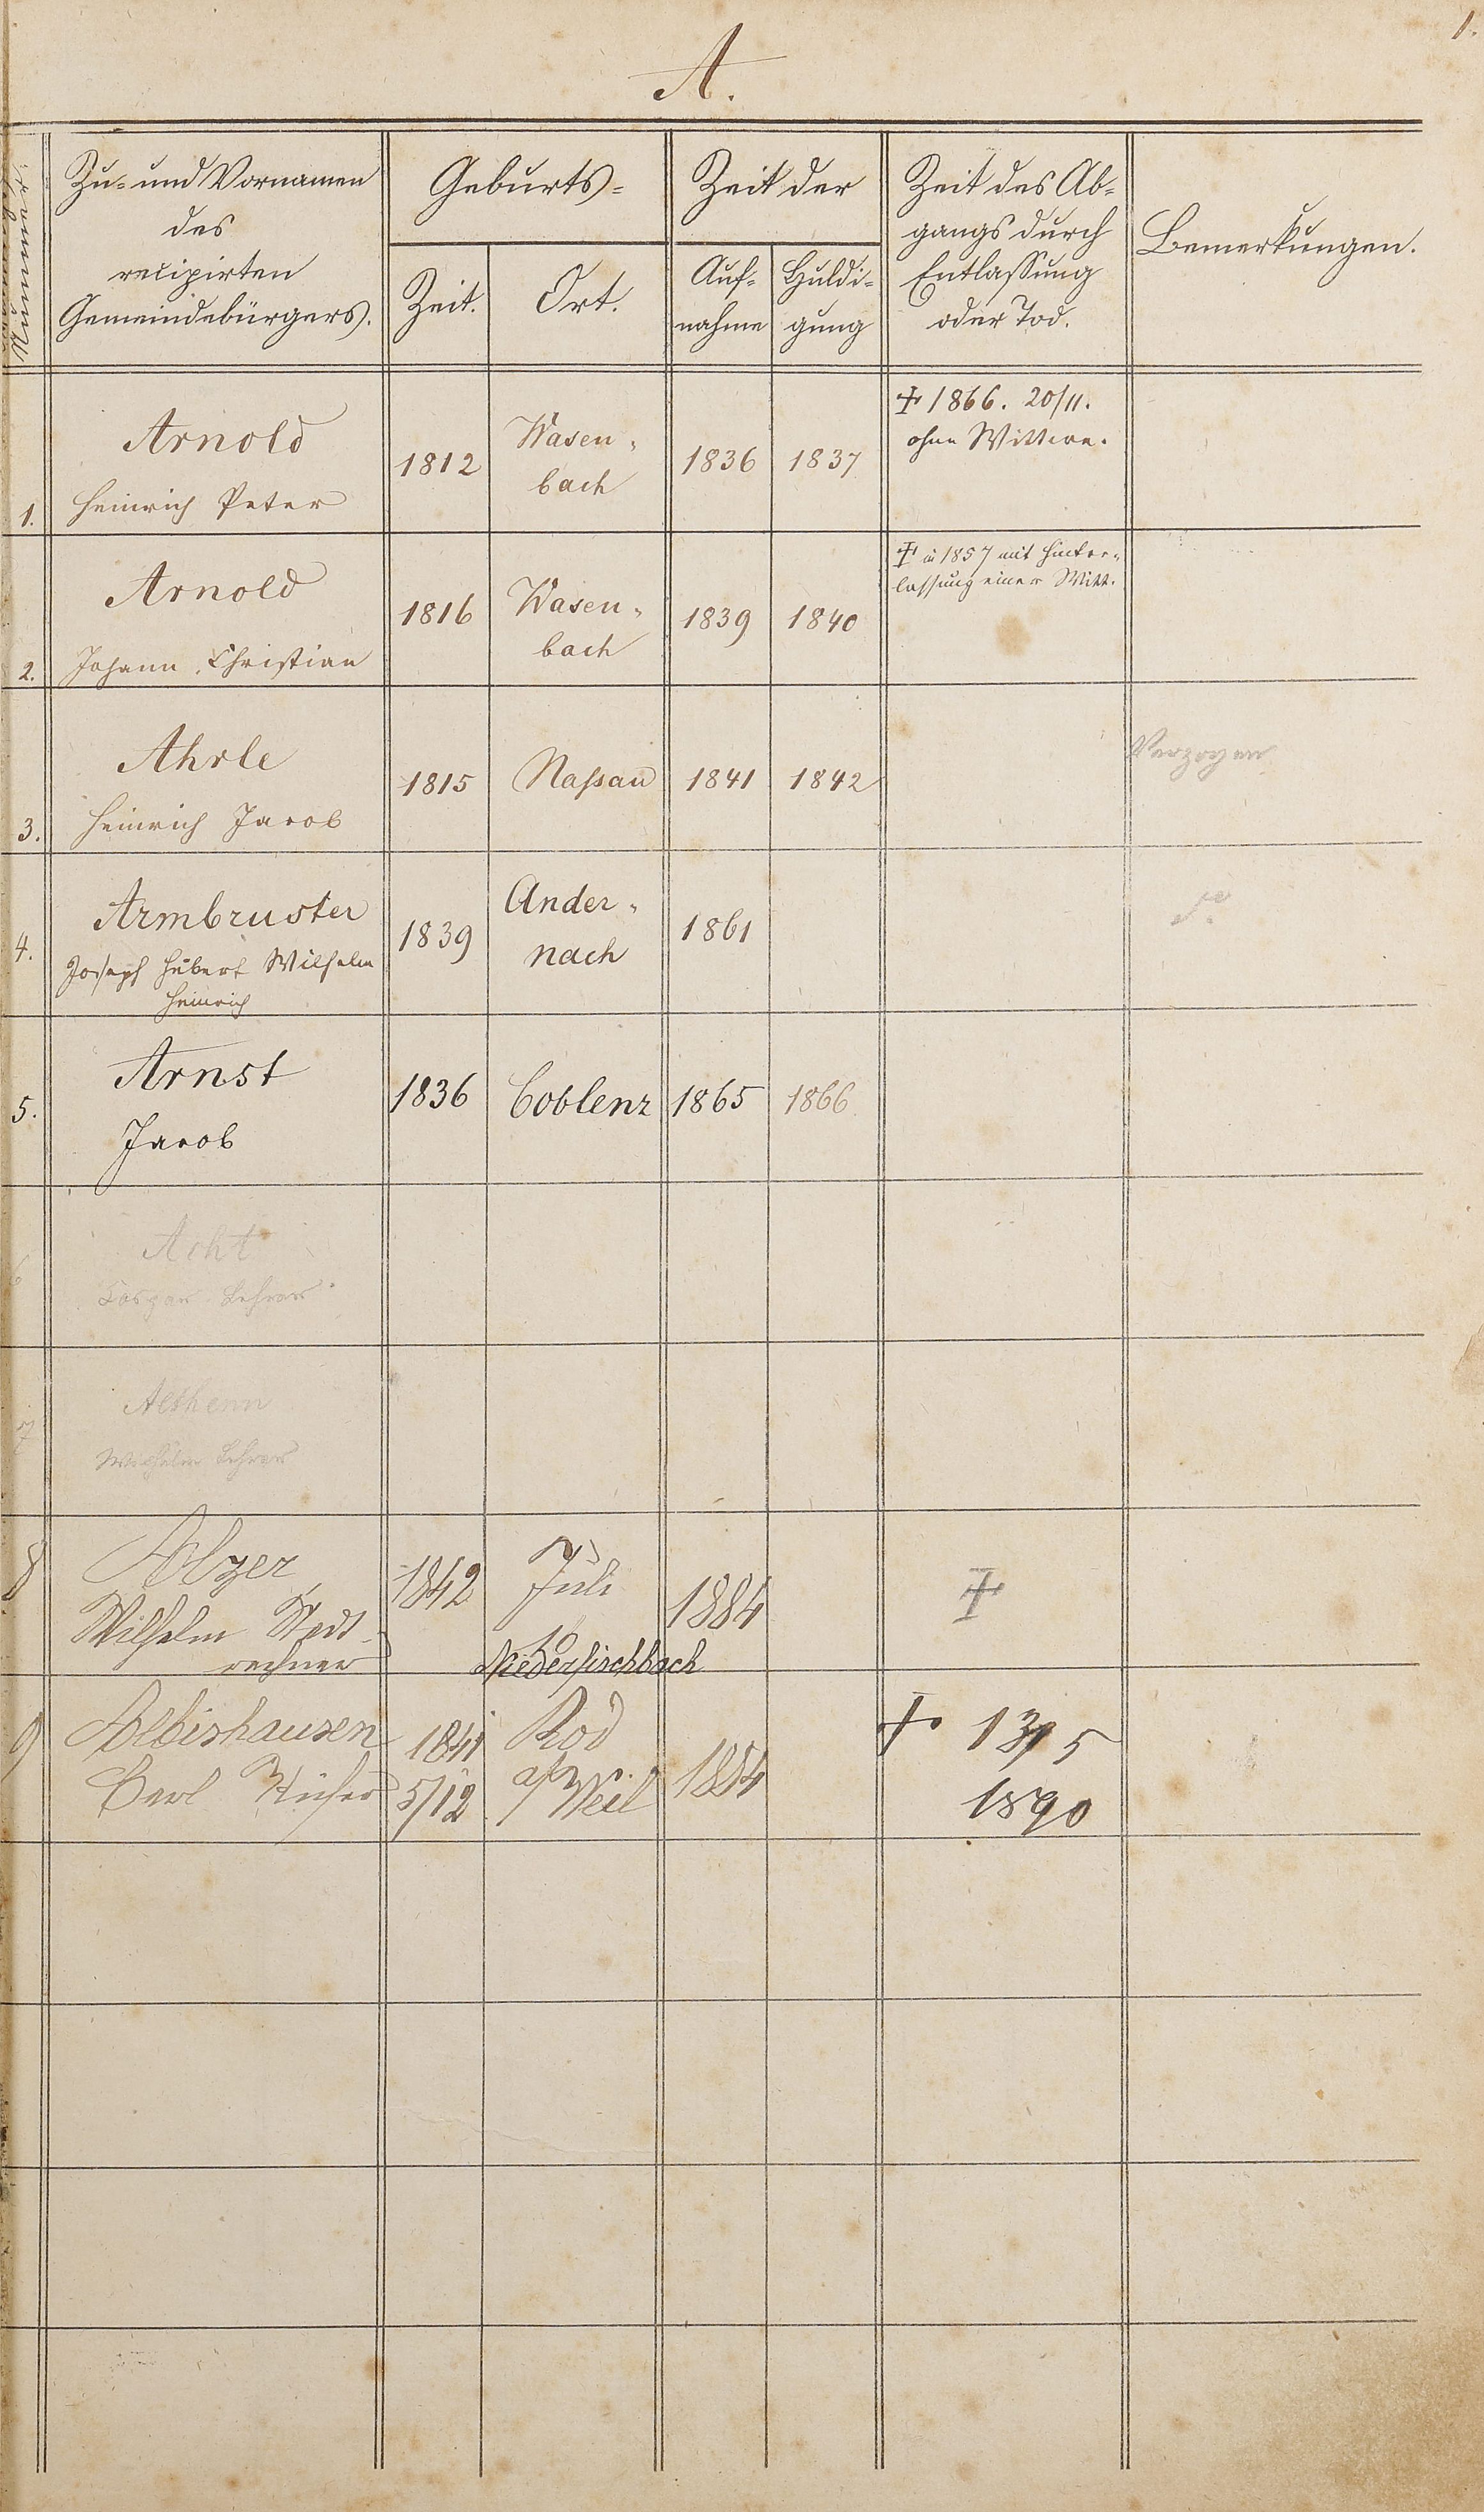 1.
A.
Nummer
Zu- und Vornamen
des
recipirten
Gemeindebürgers.
Geburts-
Zeit.
Ort.
Zeit der
Auf-
nahme
Huldi-
gung
Zeit des Ab-
gangs durch
Entlassung
oder Tod.
Bemerkungen.
1.
Arnold
Heinrich Peter
1812
Wasen-
bach
1836
1837
† 1866. 20/11.
ohne Wittwe.
2.
Arnold
Johann Christian
1816
Wasen-
bach
1839
1840
† in 1857 mit Hinter-
lassung einer Witt.
3.
Ahrle
Heinrich Jacob
1815
Naßau
1841
1842
Verzogen
4.
Armbruster
Joseph Hubert Wilhelm
Heinrich
1839
Ander-
nach
1861
5.
Arnst
Jacob
1836
Coblenz
1865
1866
6
Acht
Caspar Lehrer
7
Althenn
Wilhelm Lehrer
8
Alzer
Wilhelm Stadt-
rechner
1842
Juli
10
Niederfischbach
1884
†
9
Albishausen
Carl Küfer
1841
5/12
Rod
a/Weil
1884
† 13/5
1890